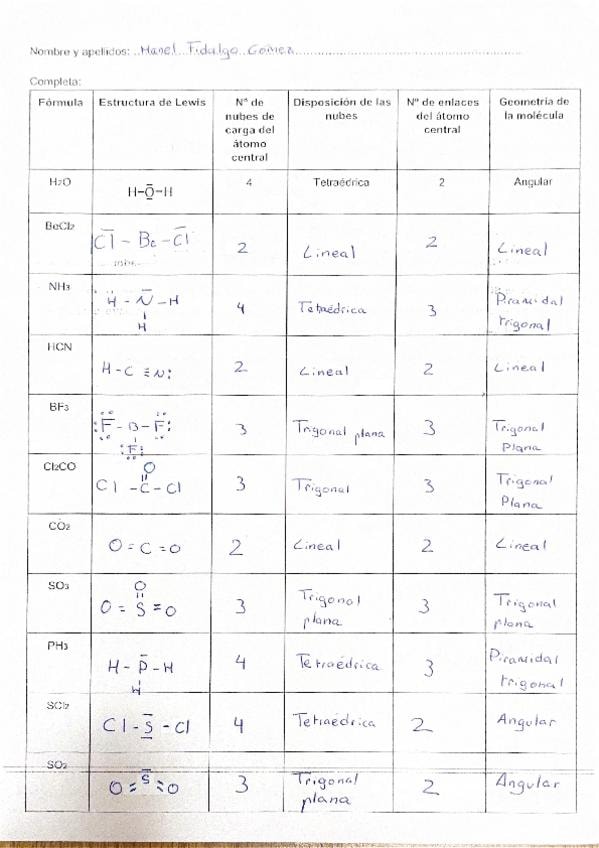 Nombre y apellidos: Manel Fidalgo Gómez
Completa:
Fórmula Estructura de Lewis Nº de nubes de carga del átomo central Disposición de las nubes Nº de enlaces del átomo central Geometría de la molécula
H2O H-O-H 4 Tetraédrica 2 Angular
BeCl2 Cl - Be - Cl 2 Lineal 2 Lineal
NH3 H - N - H 4 Tetraédrica 3 Piramidal trigonal
H
HCN H - C ≡ N: 2 Lineal 2 Lineal
BF3 :F - B - F: 3 Trigonal plana 3 Trigonal Plana
:F:
O
Cl2CO Cl - C - Cl 3 Trigonal 3 Trigonal Plana
CO2 O = C = O 2 Lineal 2 Lineal
O
SO3 O = S = O 3 Trigonal plana 3 Trigonal plana
PH3 H - P - H 4 Tetraédrica 3 Piramidal trigonal
H
SCl2 Cl - S - Cl 4 Tetraédrica 2 Angular
SO2 O = S = O 3 Trigonal plana 2 Angular